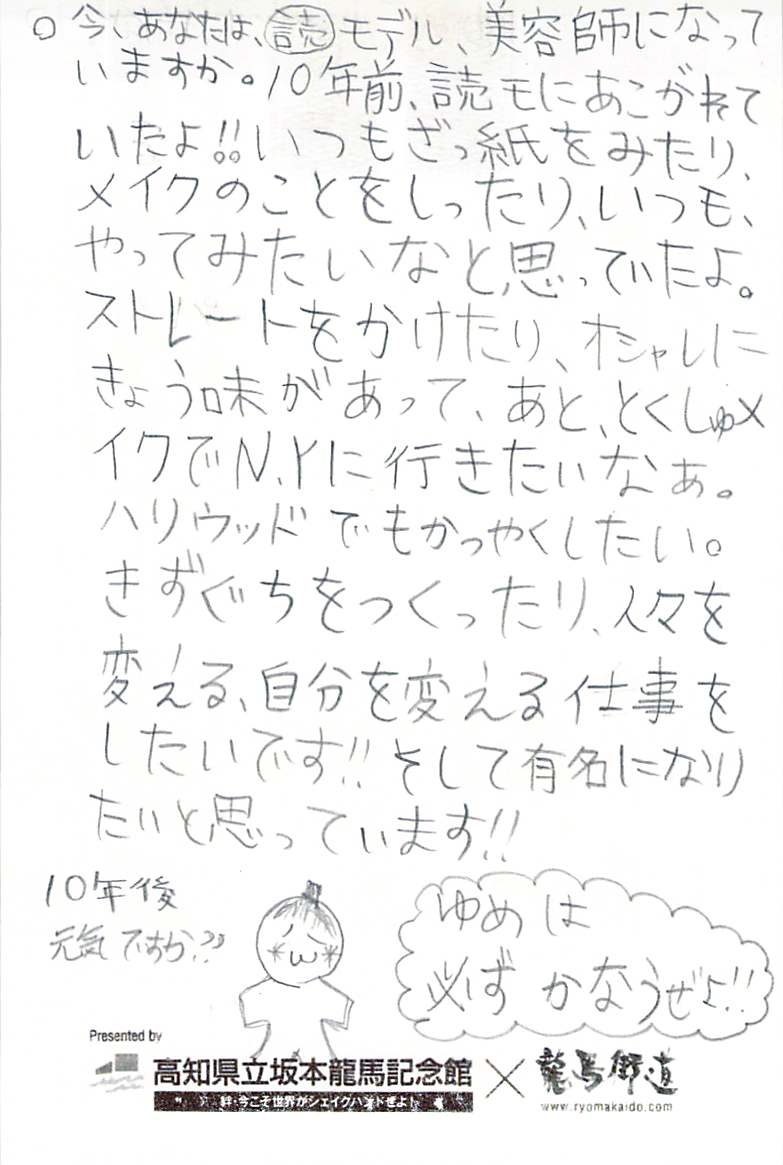 ○今、あなたは、読モデル、美容師になって
いますか。10年前、読モにあこがれて
いたよ!!いつもざっ紙をみたり、
メイクのことをしったり、いつも、
やってみたいなと思っていたよ。
ストレートをかけたり、オシャレに
きょう味があって、あと、とくしゅメ
イクでN.Yに行きたいなぁ。
ハリウッドでもかつやくしたい。
きずぐちをつくったり、人々を
変える、自分を変える仕事を
したいです!!そして有名になり
たいと思っています!!
10年後
元気ですか??
ゆめは
必ずかなうぜよ!!
Presented by
高知県立坂本龍馬記念館×龍馬街道
絆・今こそ世界がシェイクハンドぜよ!
www.ryomakaido.com